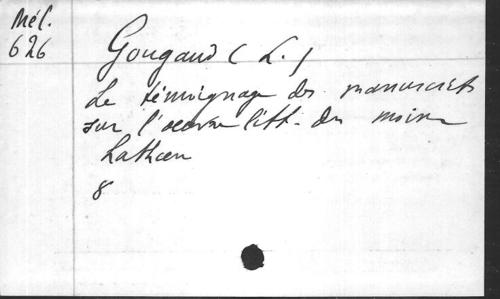 Mél.
626
Gougaud (L.)
Le témoignage des manuscrits
sur l'œuvre litt. du moine
Lathcen
8